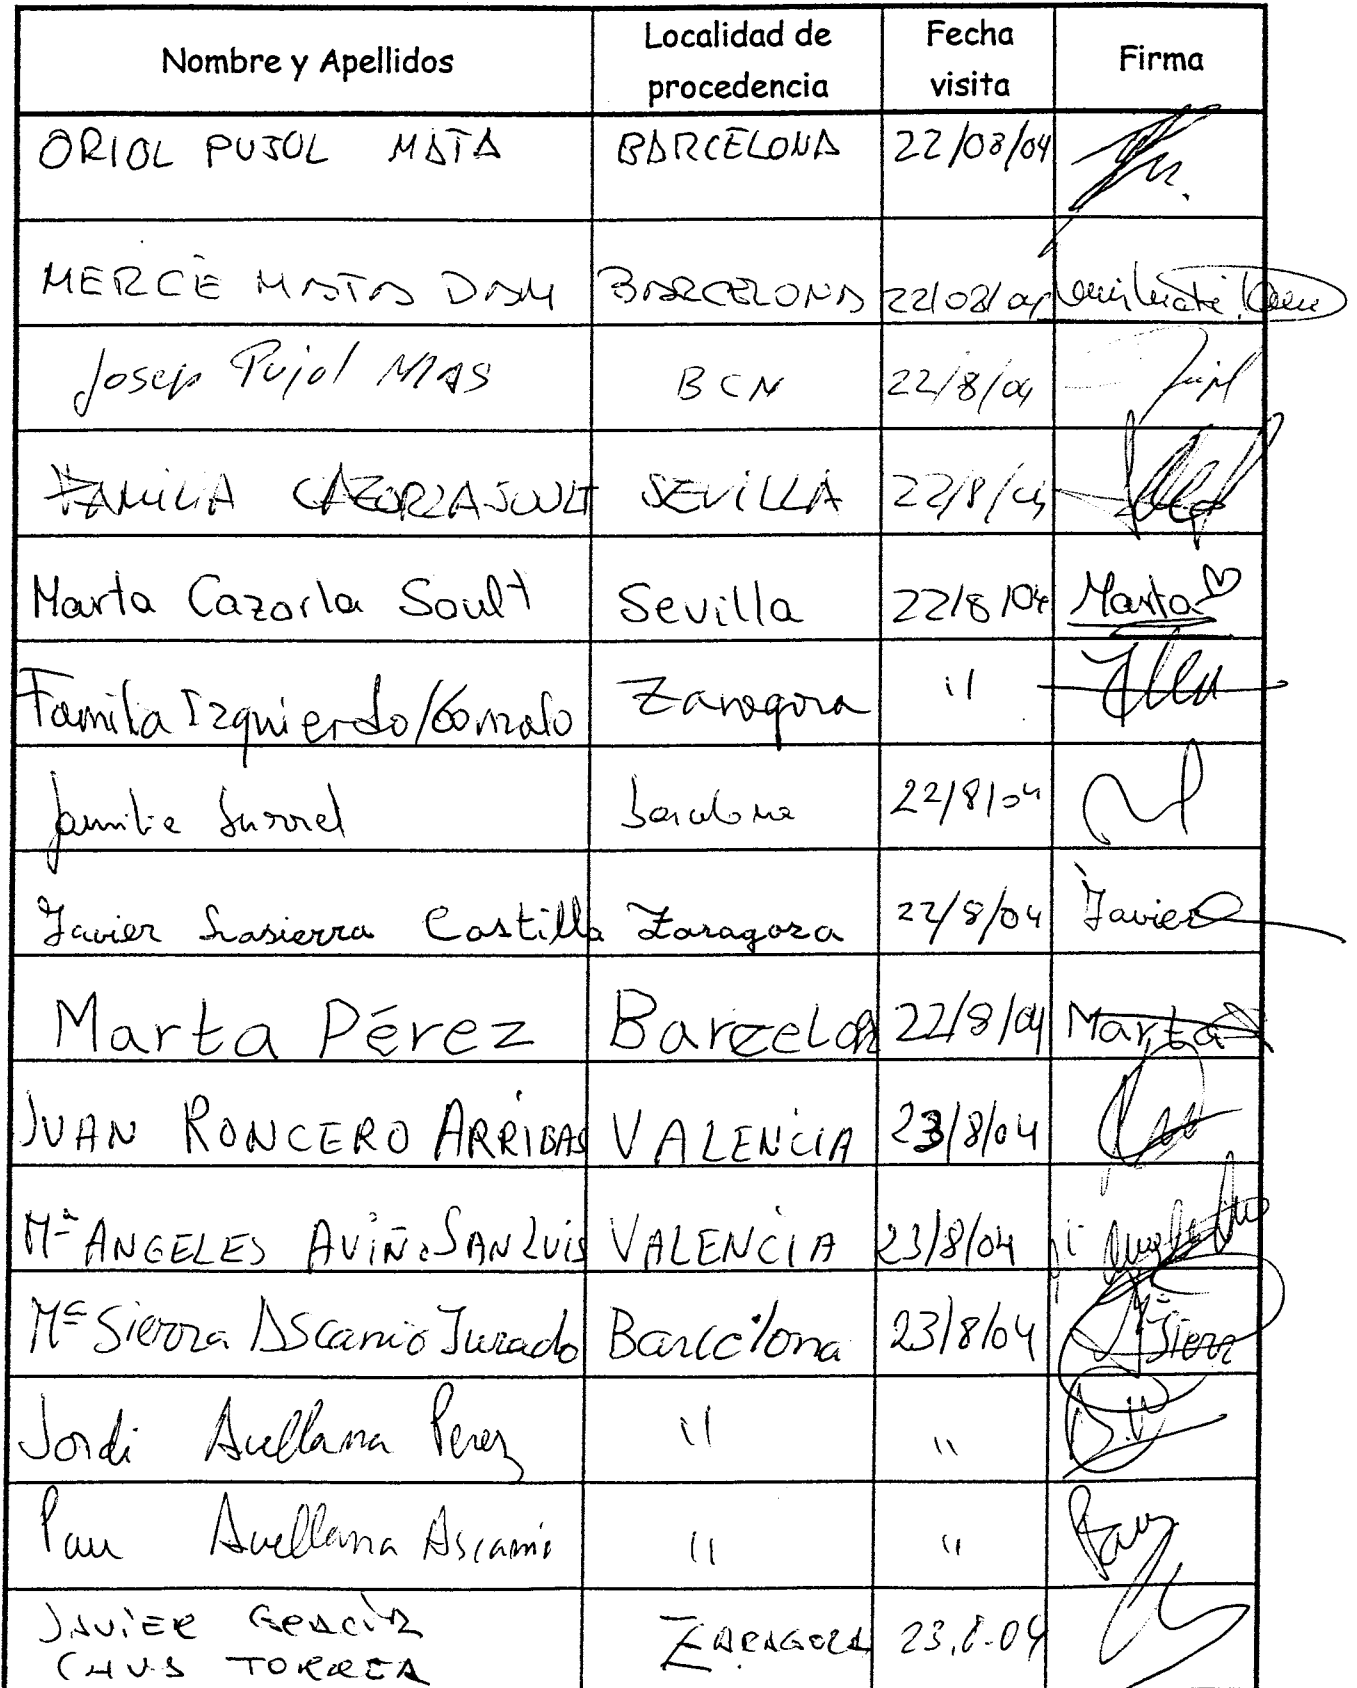 Nombre y Apellidos Localidad de procedencia Fecha visita Firma
ORIOL PUJOL MATA BARCELONA 22/08/04
MERCÈ MATA DAM BARCELONA 22/08/04
Josep Pujol MAS BCN 22/8/04 Pujol
FAMILIA CAZORLA SOULT SEVILLA 22/8/04
Marta Cazorla Soult Sevilla 22/8/04 Marta
Familia Izquierdo/Gonzalo Zaragoza "
familia Surrel Barcelona 22/8/04
Javier Lasierra Castilla Zaragoza 22/8/04 Javier
Marta Pérez Barcelon 22/8/04 Marta
JUAN RONCERO ARRIBAS VALENCIA 23/8/04
Mª ANGELES AVIÑO SANLUIS VALENCIA 23/8/04
Mª Sierra Ascanio Jurado Barcelona 23/8/04 Mª Sierra
Jordi Avellana Perez " "
Pau Avellana Ascanio " " Pau
JAVIER GRACIA ZARAGOZA 23.8.04
CHUS TORREA